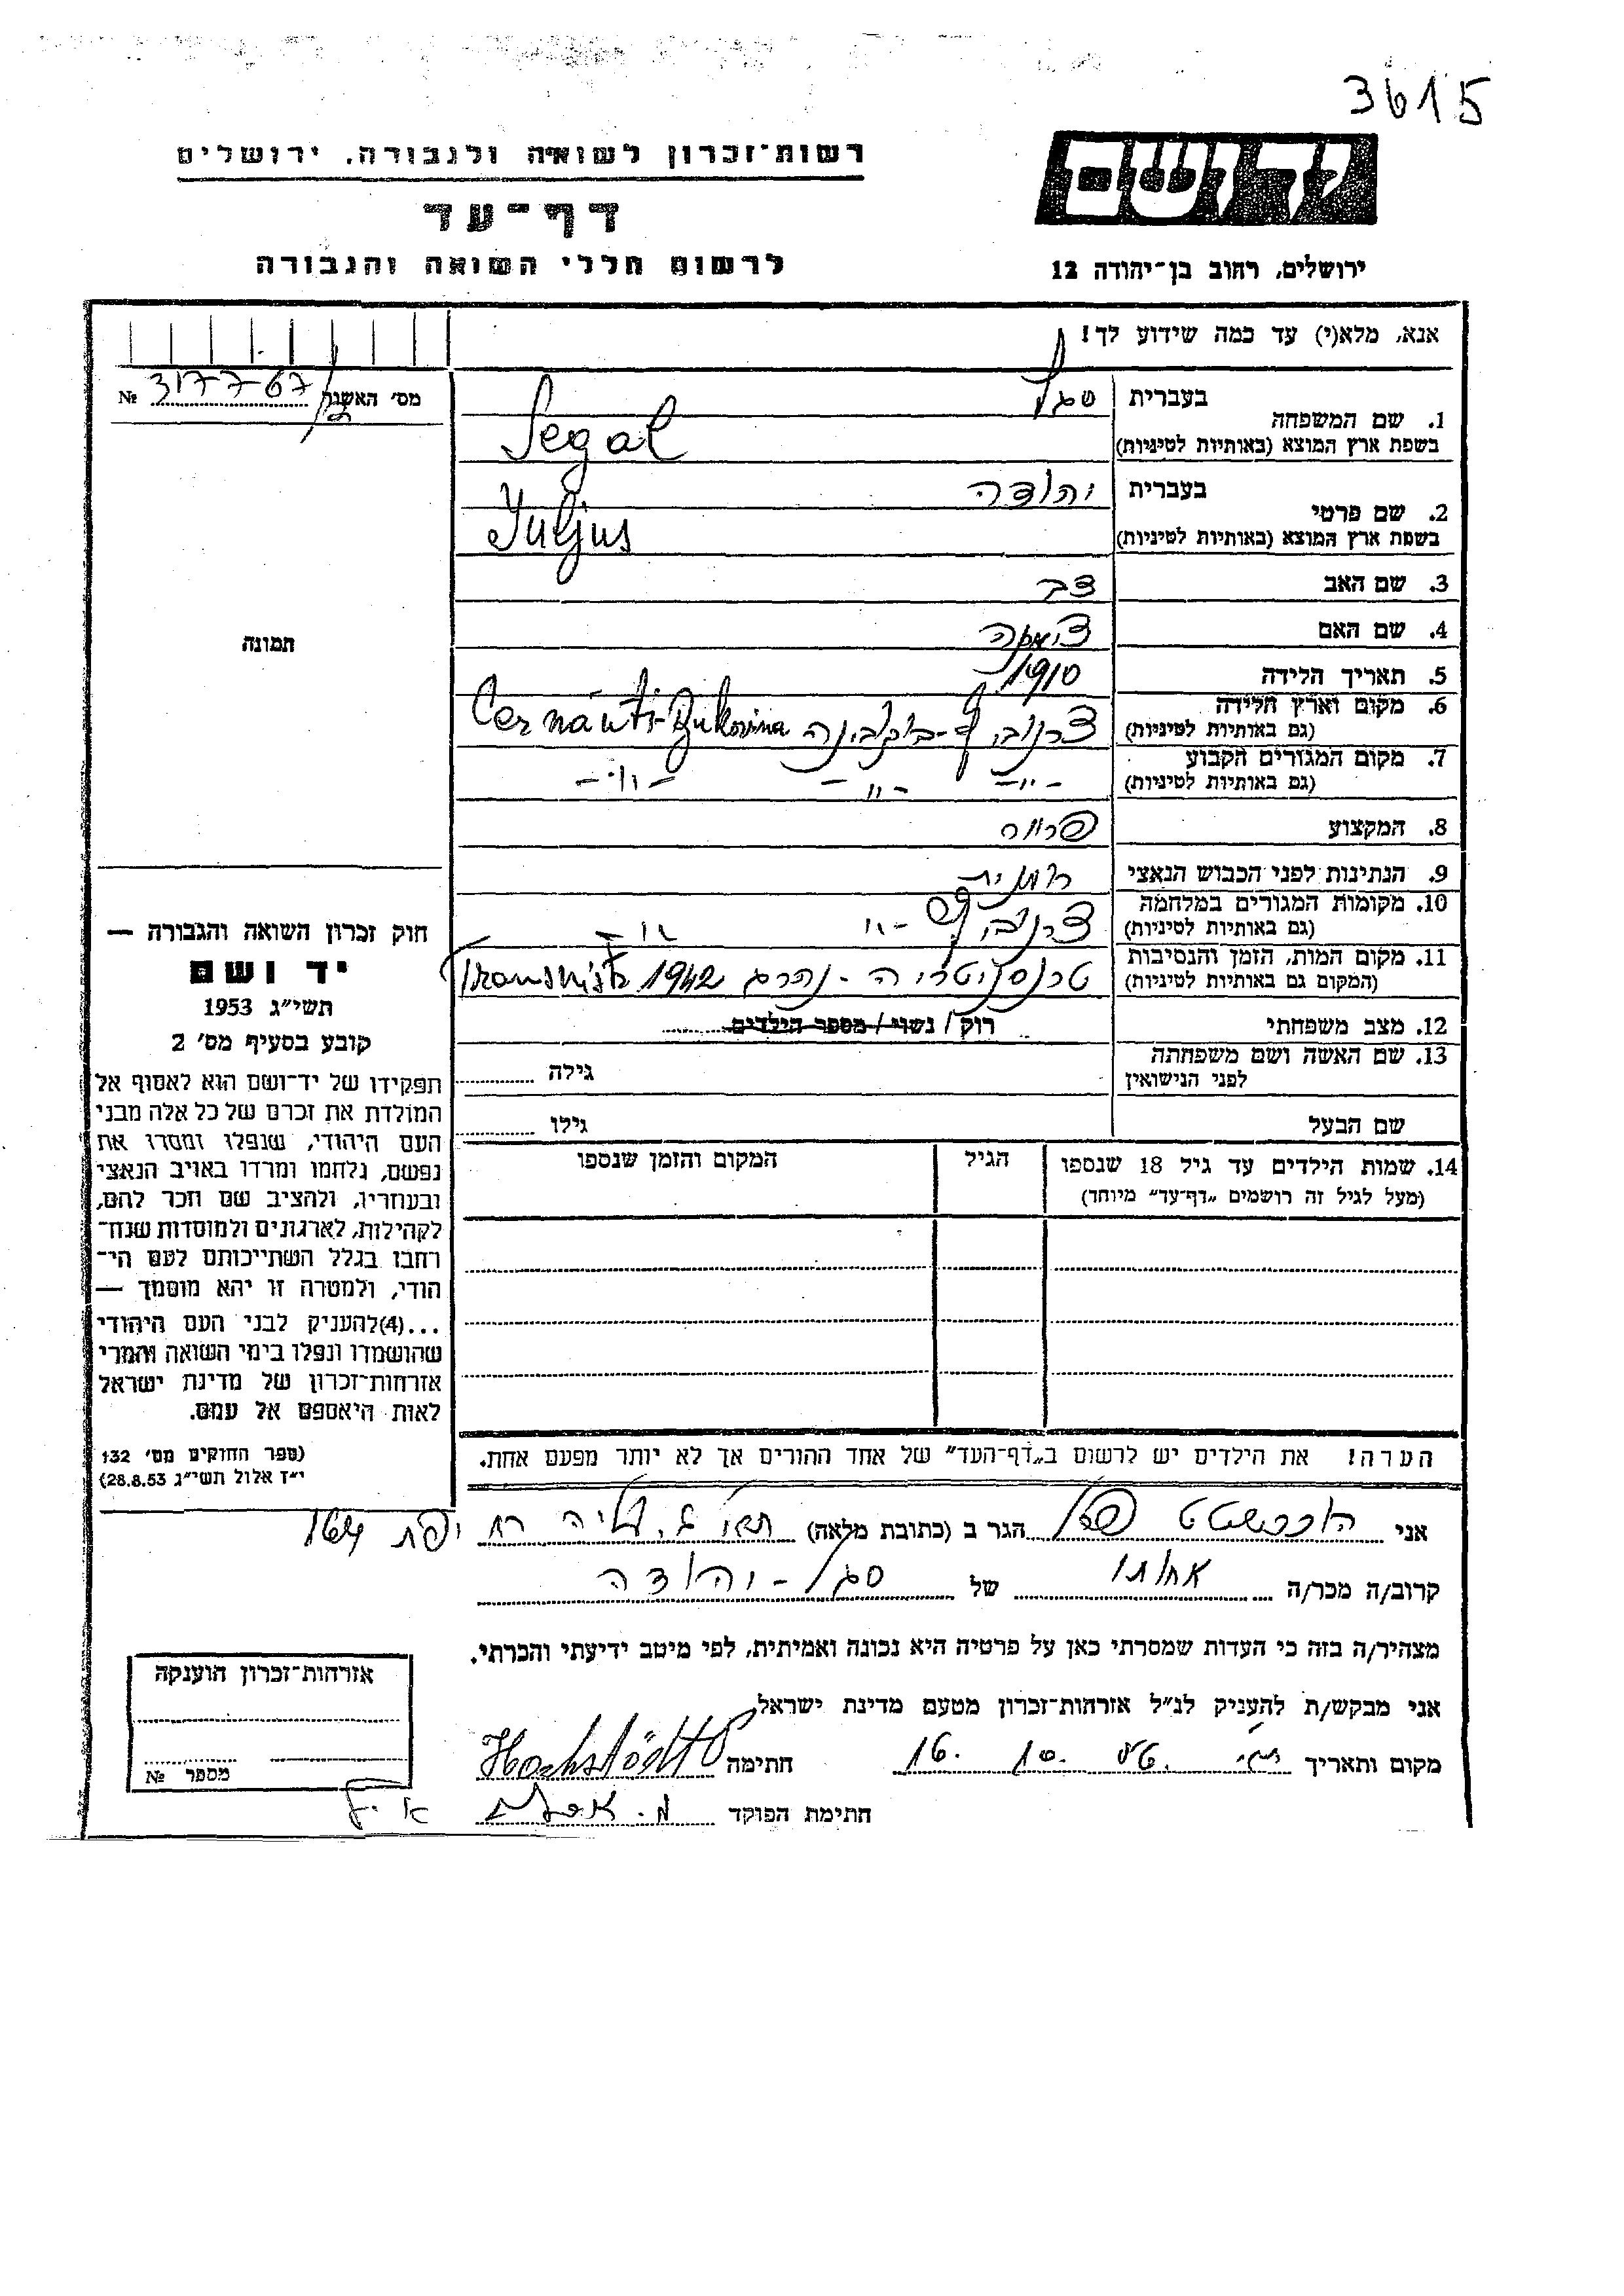 3615
ידושם
רשות־זכרון לשואה ולגבורה, ירושלים
דף־עד
לרשום חללי השואה והגבורה
ירושלים, רחוב בן־יהודה 12
אנא, מלא(י) עד כמה שידוע לך!
מס׳ האשנה № 317767
תמונה
1. שם המשפחה בעברית סגל
בשפת ארץ המוצא (באותיות לטיניות) Segal
2. שם פרטי בעברית יהודה
בשפת ארץ המוצא (באותיות לטיניות) Juljus
3. שם האב צבי
4. שם האם
5. תאריך הלידה 1910
6. מקום וארץ הלידה צרנוביץ-בוקובינה Cernăuti-Bukovina
(גם באותיות לטיניות)
7. מקום המגורים הקבוע -״- -״- -״-
(גם באותיות לטיניות)
8. המקצוע
9. הנתינות לפני הכבוש הנאצי רומנית
10. מקומות המגורים במלחמה צרנוביץ -״- -״-
(גם באותיות לטיניות)
11. מקום המות, הזמן והנסיבות טרנסניסטריה - נהרג 1942
(המקום גם באותיות לטיניות)
12. מצב משפחתי רוק / נשוי / מספר הילדים
13. שם האשה ושם משפחתה גילה
לפני הנישואין
שם הבעל גילו
14. שמות הילדים עד גיל 18 שנספו הגיל המקום והזמן שנספו
(מעל לגיל זה רושמים „דף־עד” מיוחד)
הערה! את הילדים יש לרשום ב„דף־העד” של אחד ההורים אך לא יותר מפעם אחת.
חוק זכרון השואה והגבורה —
יד ושם
תשי״ג 1953
קובע בסעיף מס׳ 2
תפקידו של יד־ושם הוא לאסוף אל
המולדת את זכרם של כל אלה מבני
העם היהודי, שנפלו ומסרו את
נפשם, נלחמו ומרדו באויב הנאצי
ובעוזריו, ולהציב שם וזכר להם,
לקהילות, לארגונים ולמוסדות שנח־
רחבו בגלל השתייכותם לעם הי־
הודי, ולמטרה זו יהא מוסמך —
...(4)להעניק לבני העם היהודי
שהושמדו ונפלו בימי השואה והמרי
אזרחות־זכרון של מדינת ישראל
לאות היאספם אל עמם.
(ספר החוקים מס׳ 132
י״ז אלול תשי״ג 28.8.53)
אני הוכשטט הגר ב (כתובת מלאה)
קרוב/ה מכר/ה אחותו של סגל - יהודה
מצהיר/ה בזה כי העדות שמסרתי כאן על פרטיה היא נכונה ואמיתית, לפי מיטב ידיעתי והכרתי.
אני מבקש/ת להעניק לנ״ל אזרחות־זכרון מטעם מדינת ישראל
מקום ותאריך 16. 10. חתימה Hochstädt
חתימת הפוקד
אזרחות־זכרון הוענקה
מספר №